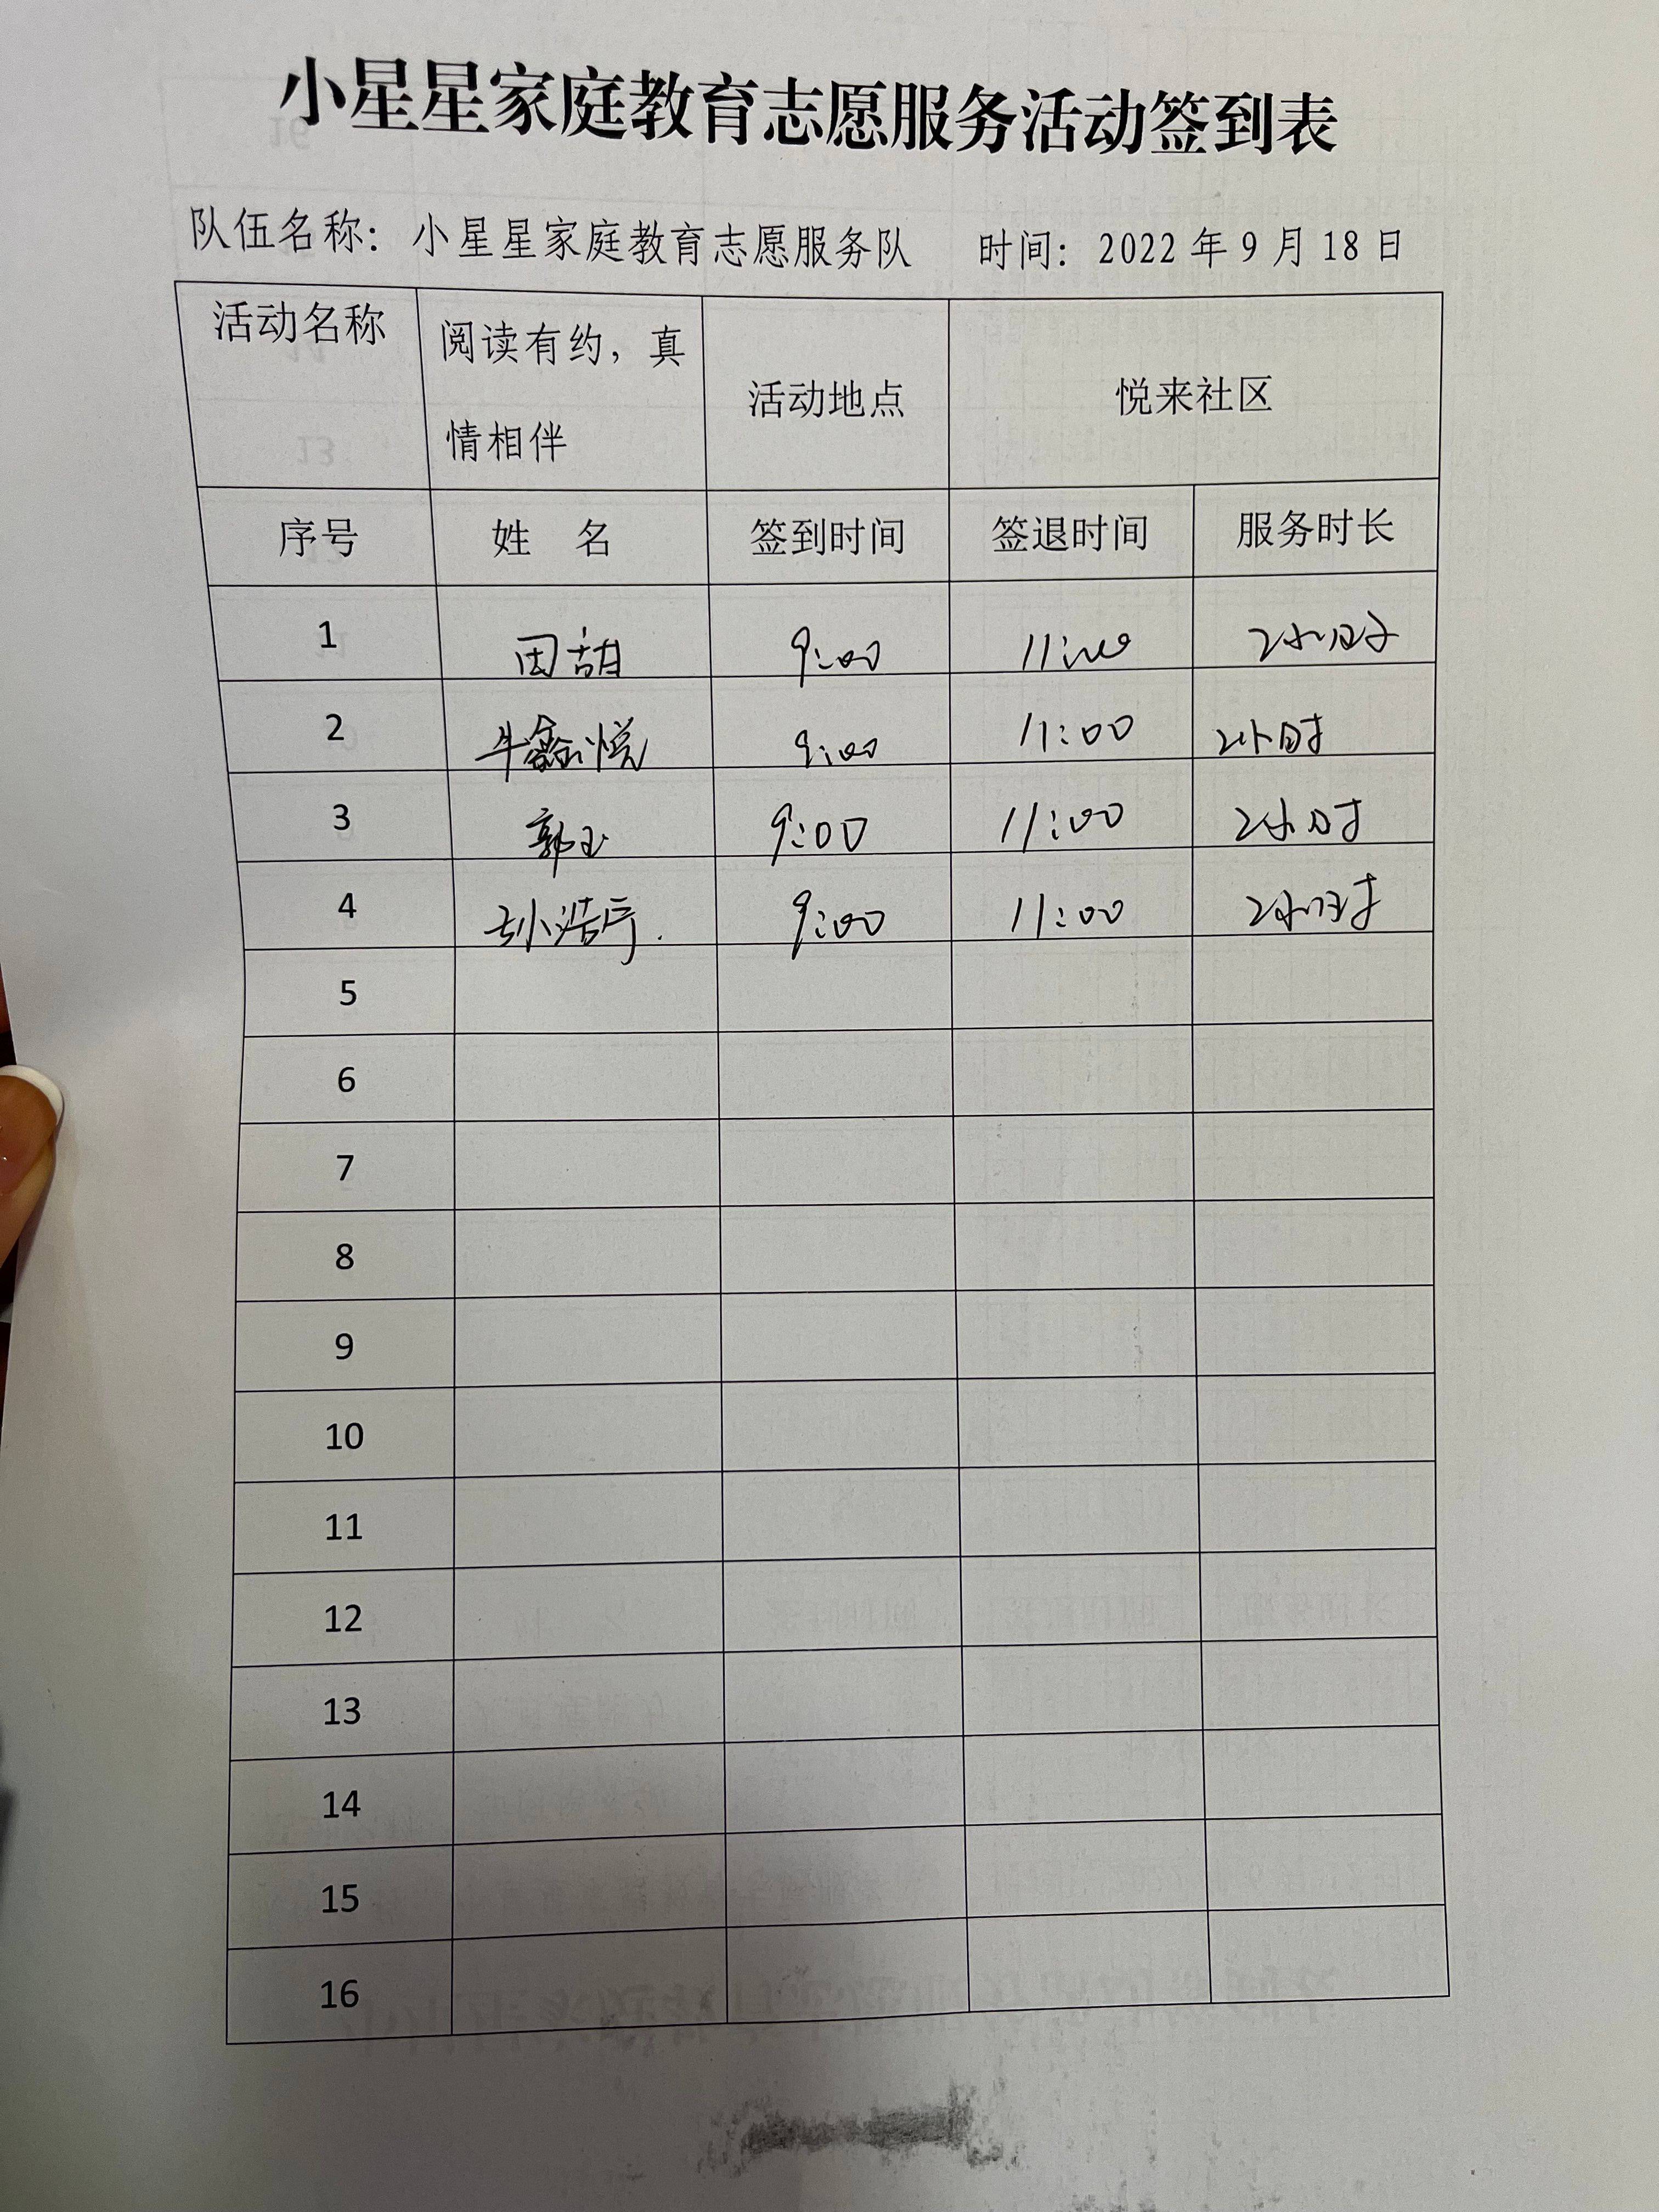 小星星家庭教育志愿服务活动签到表
队伍名称：小星星家庭教育志愿服务队 时间：2022年9月18日
活动名称 阅读有约，真情相伴 活动地点 悦来社区
序号 姓 名 签到时间 签退时间 服务时长
1 田甜 9:00 11:00 2小时
2 牛鑫悦 9:00 11:00 2小时
3 郭玉 9:00 11:00 2小时
4 孙浩宇 9:00 11:00 2小时
5
6
7
8
9
10
11
12
13
14
15
16